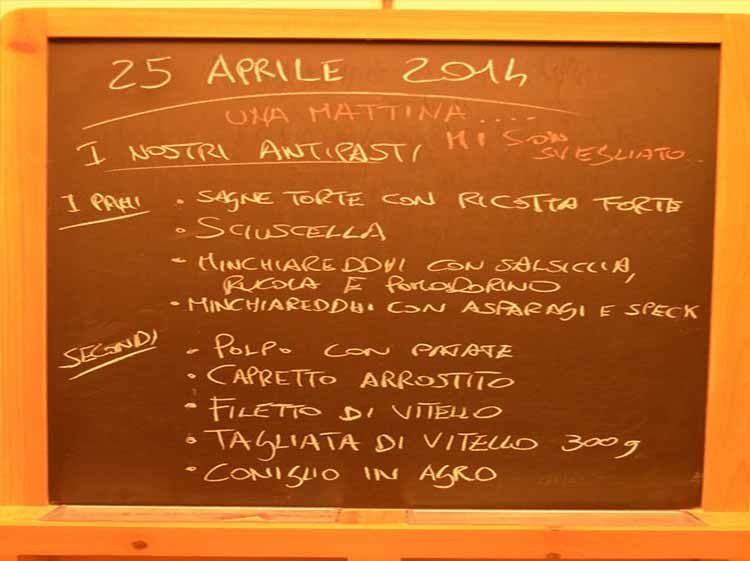 25 APRILE 2014
UNA MATTINA.....
MI SON
SVEGLIATO..
I NOSTRI ANTIPASTI
I PRIMI • SAGNE TORTE CON RICOTTA FORTE
• SCIUSCELLA
• MINCHIAREDDHI CON SALSICCIA,
RUCOLA E POMODORINO
• MINCHIAREDDHI CON ASPARAGI E SPECK
SECONDI • POLPO CON PATATE
• CAPRETTO ARROSTITO
• FILETTO DI VITELLO
• TAGLIATA DI VITELLO 300g
• CONIGLIO IN AGRO